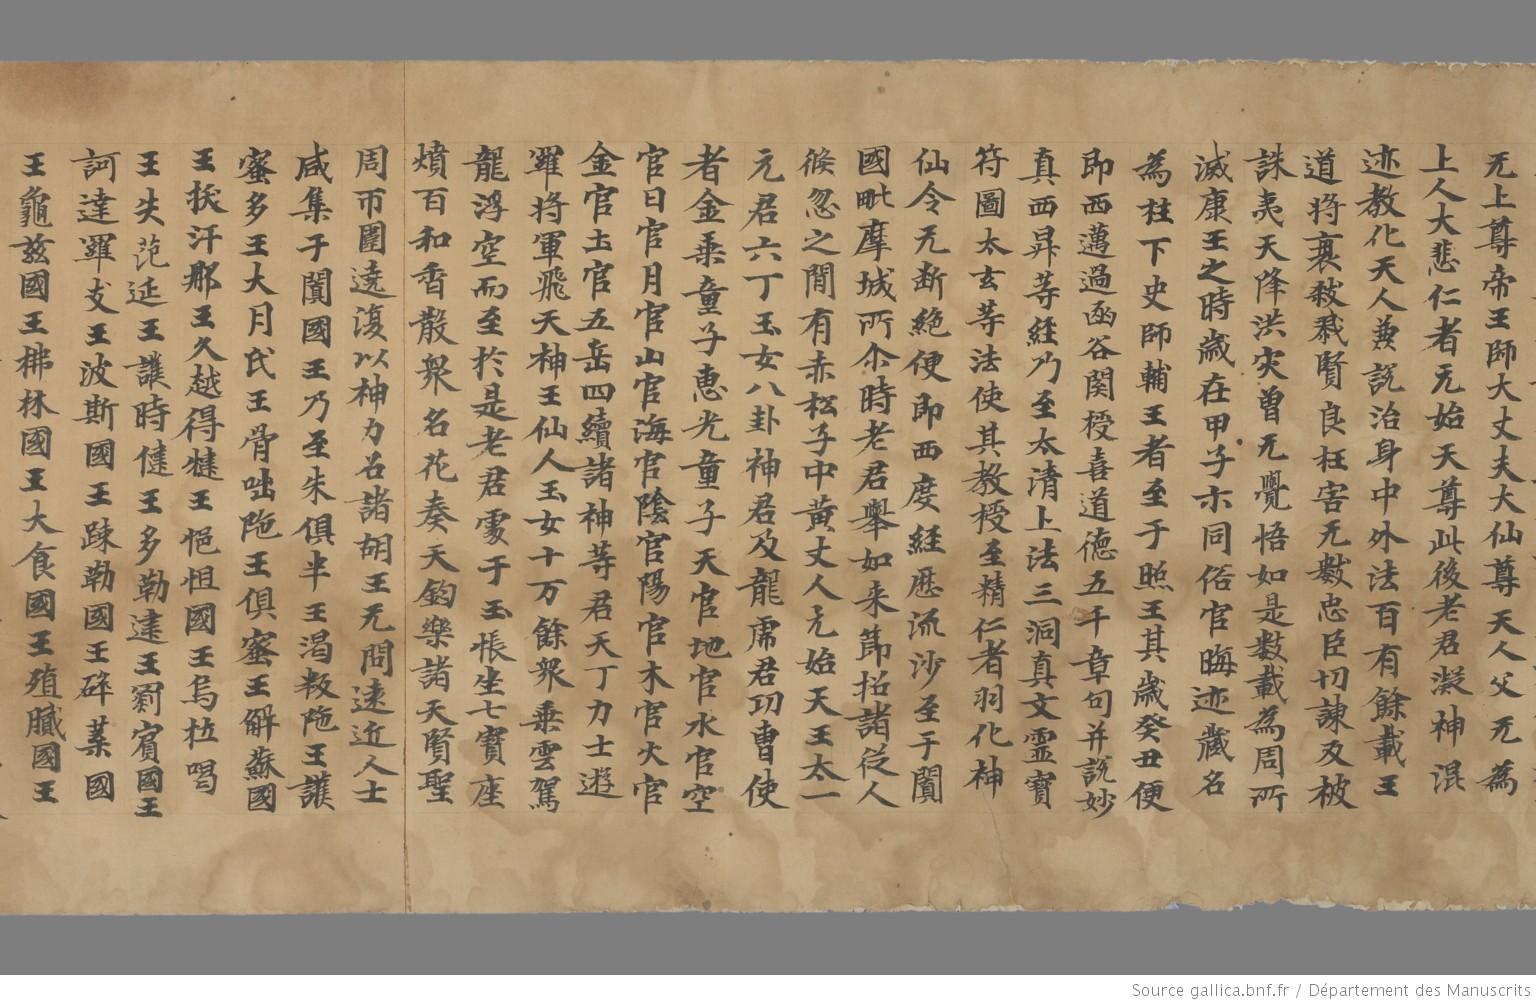 无上尊帝王師大丈夫大仙尊天人父无為
上人大悲仁者无始天尊此後老君凝神混
迹教化天人兼說治身中外法百有餘載王
道將衰殺戮賢良枉害无數忠臣切諫及被
誅夷天降洪灾曾无覺悟如是數載為周所
滅康王之時歲在甲子亦同俗官晦迹藏名
為柱下史師輔王者至于照王其歲癸丑便
即西邁過函谷関授喜道德五千章句并說妙
真西昇等経乃至太清上法三洞真文靈寶
符圖太玄等法使其教授至精仁者羽化神
仙令无断絶便即西度経歷流沙至于闐
國毗摩城所尒時老君舉如来節招諸從人
倐忽之間有赤松子中黄丈人元始天王太一
元君六丁玉女八卦神君及龍席君功曹使
者金乗童子惠光童子天官地官水官空
官日官月官山官海官陰官陽官木官火官
金官土官五岳四續諸神等君天丁力士遊
羅將軍飛天神王仙人玉女十万餘衆乗雲駕
龍浮空而至於是老君處于玉帳坐七寶座
燌百和香散衆名花奏天鈞樂諸天賢聖
周帀圍遶復以神力召諸胡王无問遠近人士
咸集于闐國王乃至朱俱半王渇叛陁王護
蜜多王大月氏王骨咄陁王俱蜜王解蘇國
王拔汗那王久越得犍王悒怛國王烏拉喝
王失范延王護時健王多勒達王罽賓國王
訶達羅支王波斯國王踈勒國王碎葉國
王龜兹國王拂林國王大食國王殖膱國王